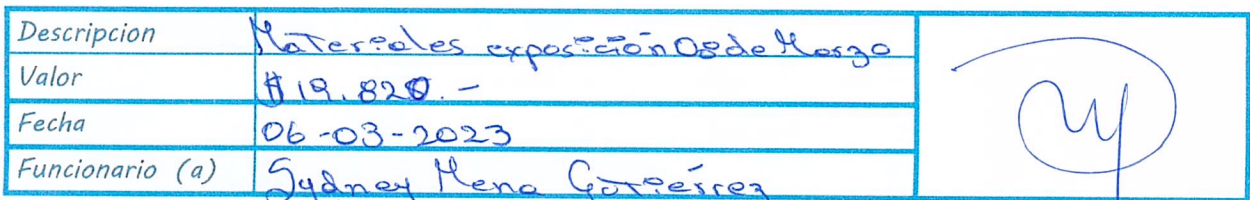 Descripcion Materiales exposición 08 de Marzo
Valor $19.820.-
Fecha 06-03-2023
Funcionario (a) Sydney Mena Gutiérrez